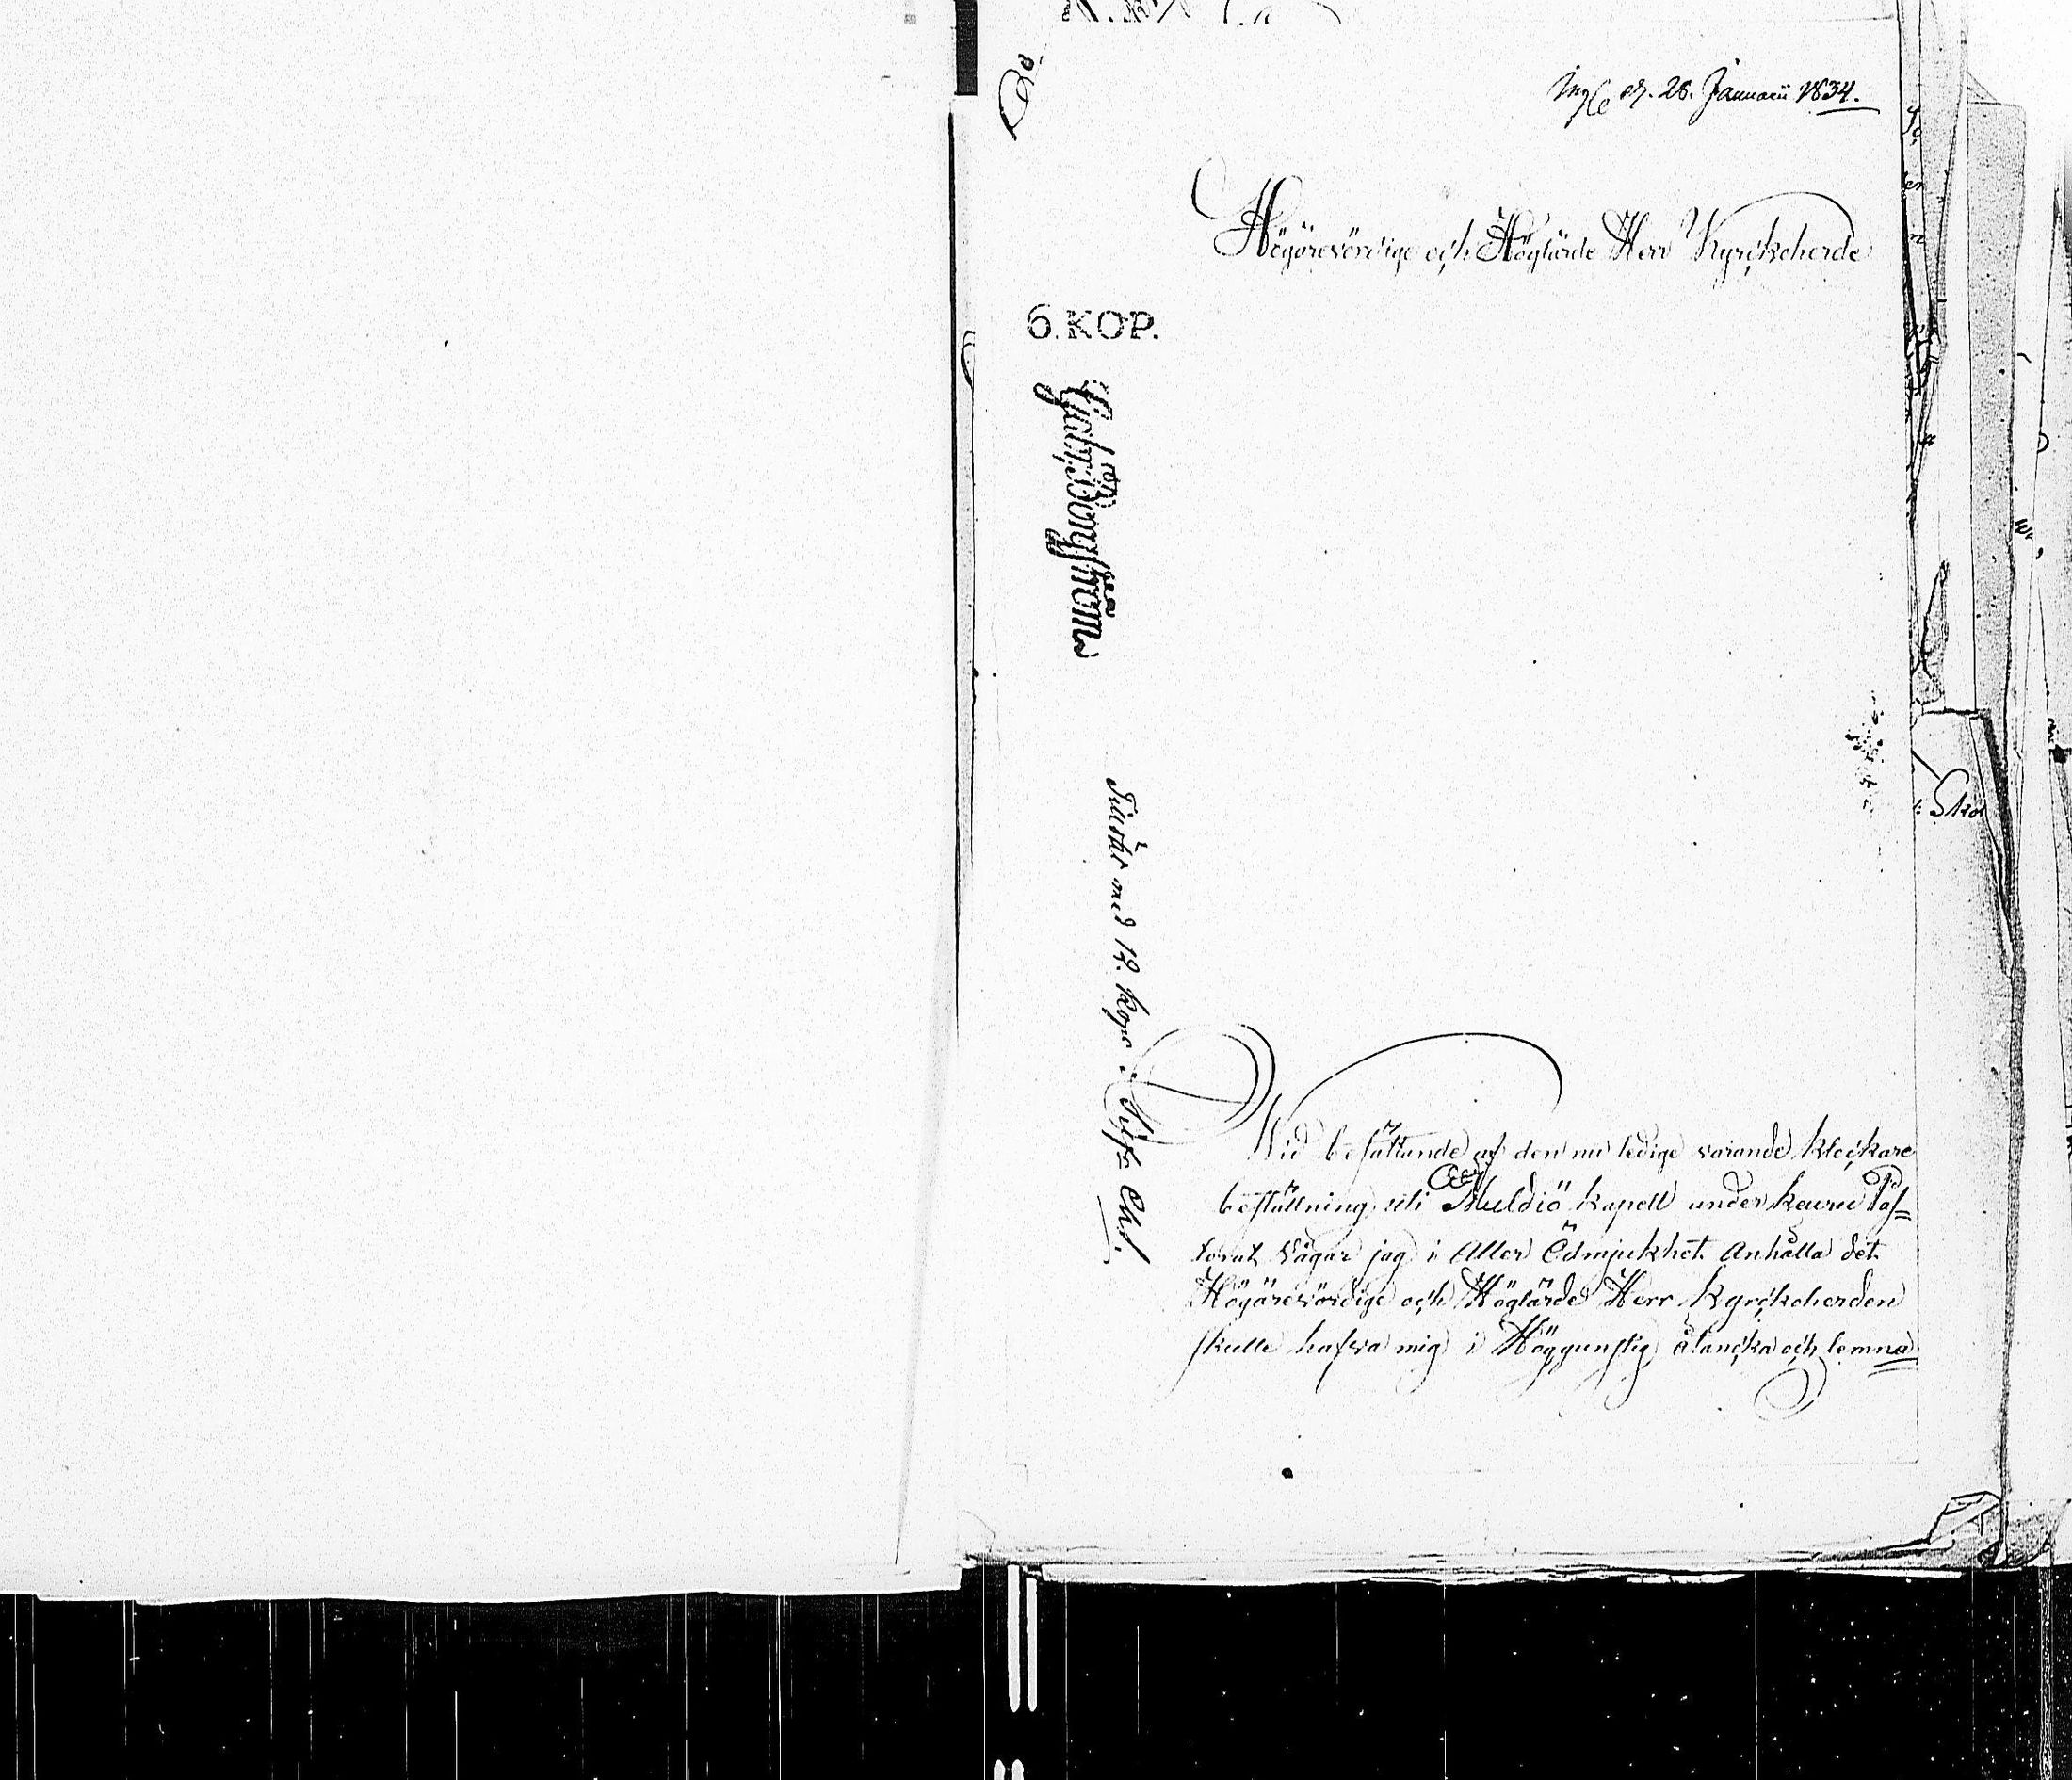 d. 28. Januarii 1834.
Högärevördige och Höglärde Herr Kyrckoherde
6. KOP.
Tillökt med 12. Kop. Silfr
Wid besättande af den nu ledige varande klockare
beställning uti Muldiö kapell under keuru Pas=
torat vågar jag i Aller Ödmjukhet Anhålla det
Högärevördige och Höglärde Herr kyrckoherden
skulle hafva mig i Höggunstig åtancka och lemna